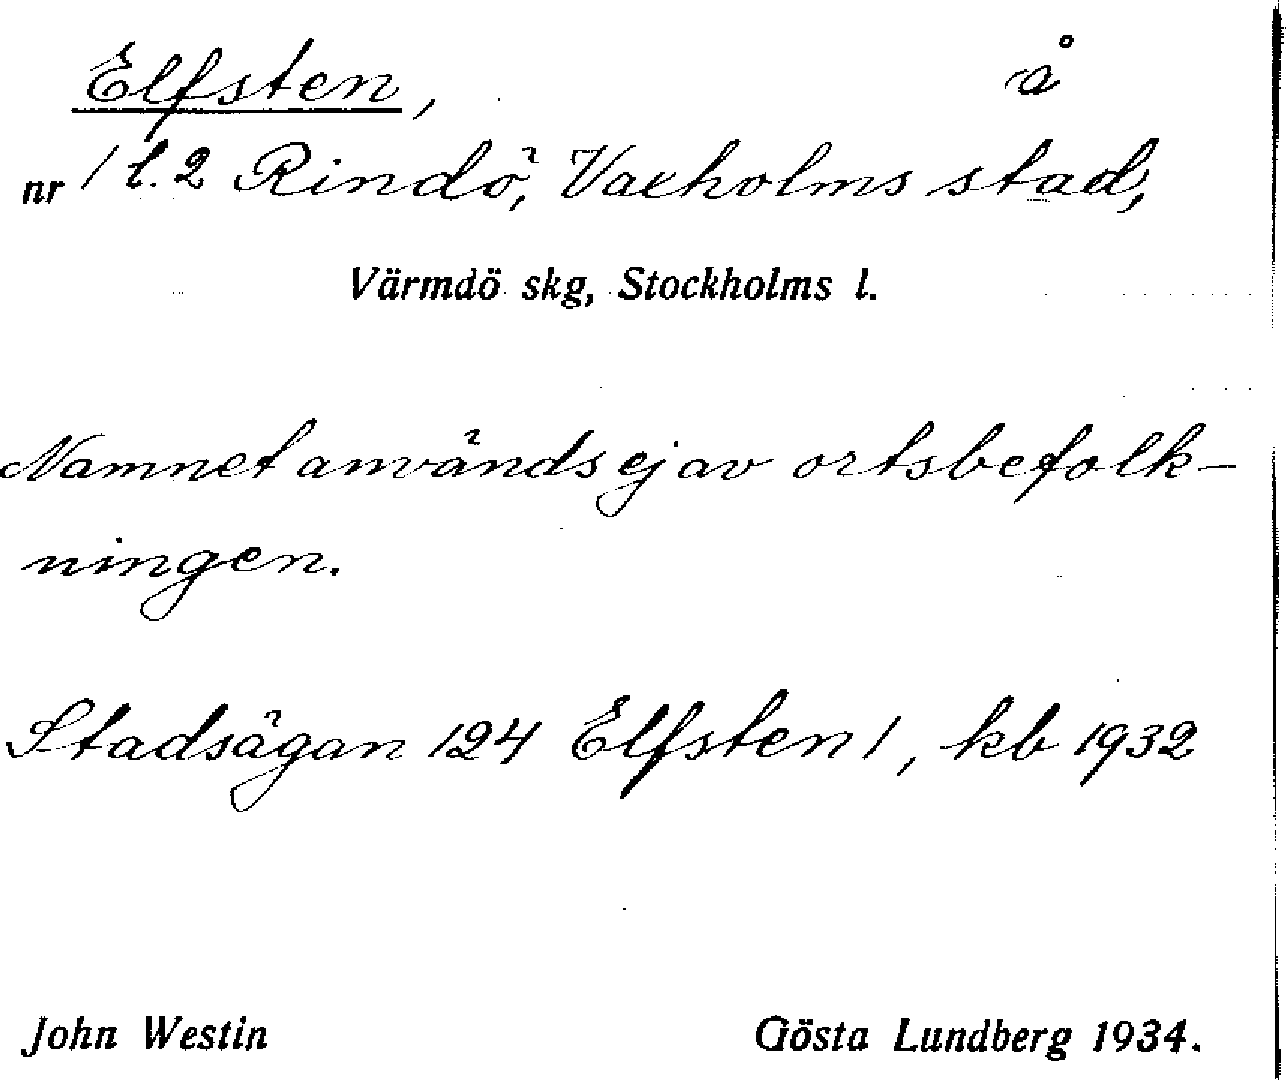 Elfsten, å
nr 1 l. 2 Rindö, Vaxholms stad,
Värmdö skg, Stockholms l.
Namnet används ej av ortsbefolk-
ningen.
Stadsägan 124 Elfsten 1, kb 1932
John Westin Gösta Lundberg 1934.